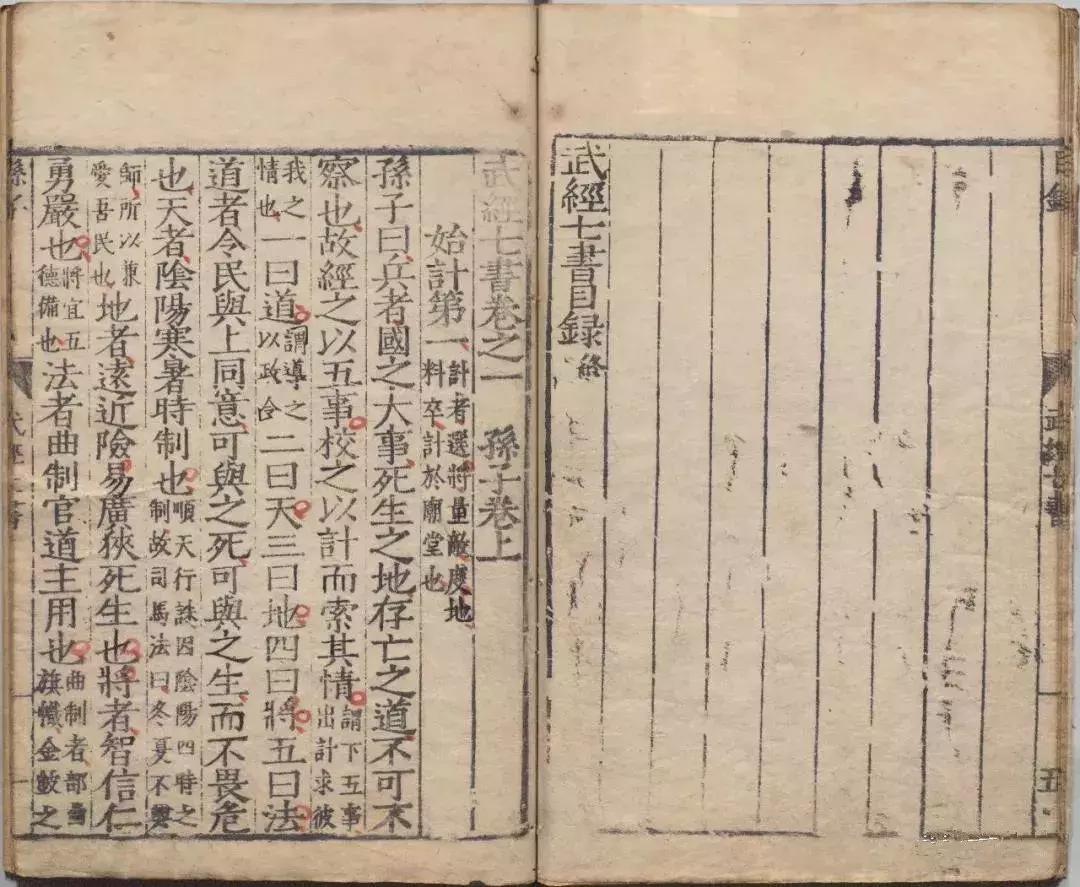 目録 武經七書 五
武經七書目録終
武經七書卷之一 孫子卷上
始計第一計者選將量敵度地料卒計於廟堂也
孫子曰兵者國之大事死生之地存亡之道不可不
察也故經之以五事校之以計而索其情謂下五事出計求彼
我之情也一曰道謂導之以政令二曰天三曰地四曰將五曰法
道者令民與上同意可與之死可與之生而不畏危
也天者陰陽寒暑時制也順天行誅因陰陽四時之制故司馬法曰冬夏不興
師所以兼愛吾民也地者遠近險易廣狹死生也將者智信仁
勇嚴也將宜五德備也法者曲制官道主用也曲制者部曲旗幟金鼓之
孫子